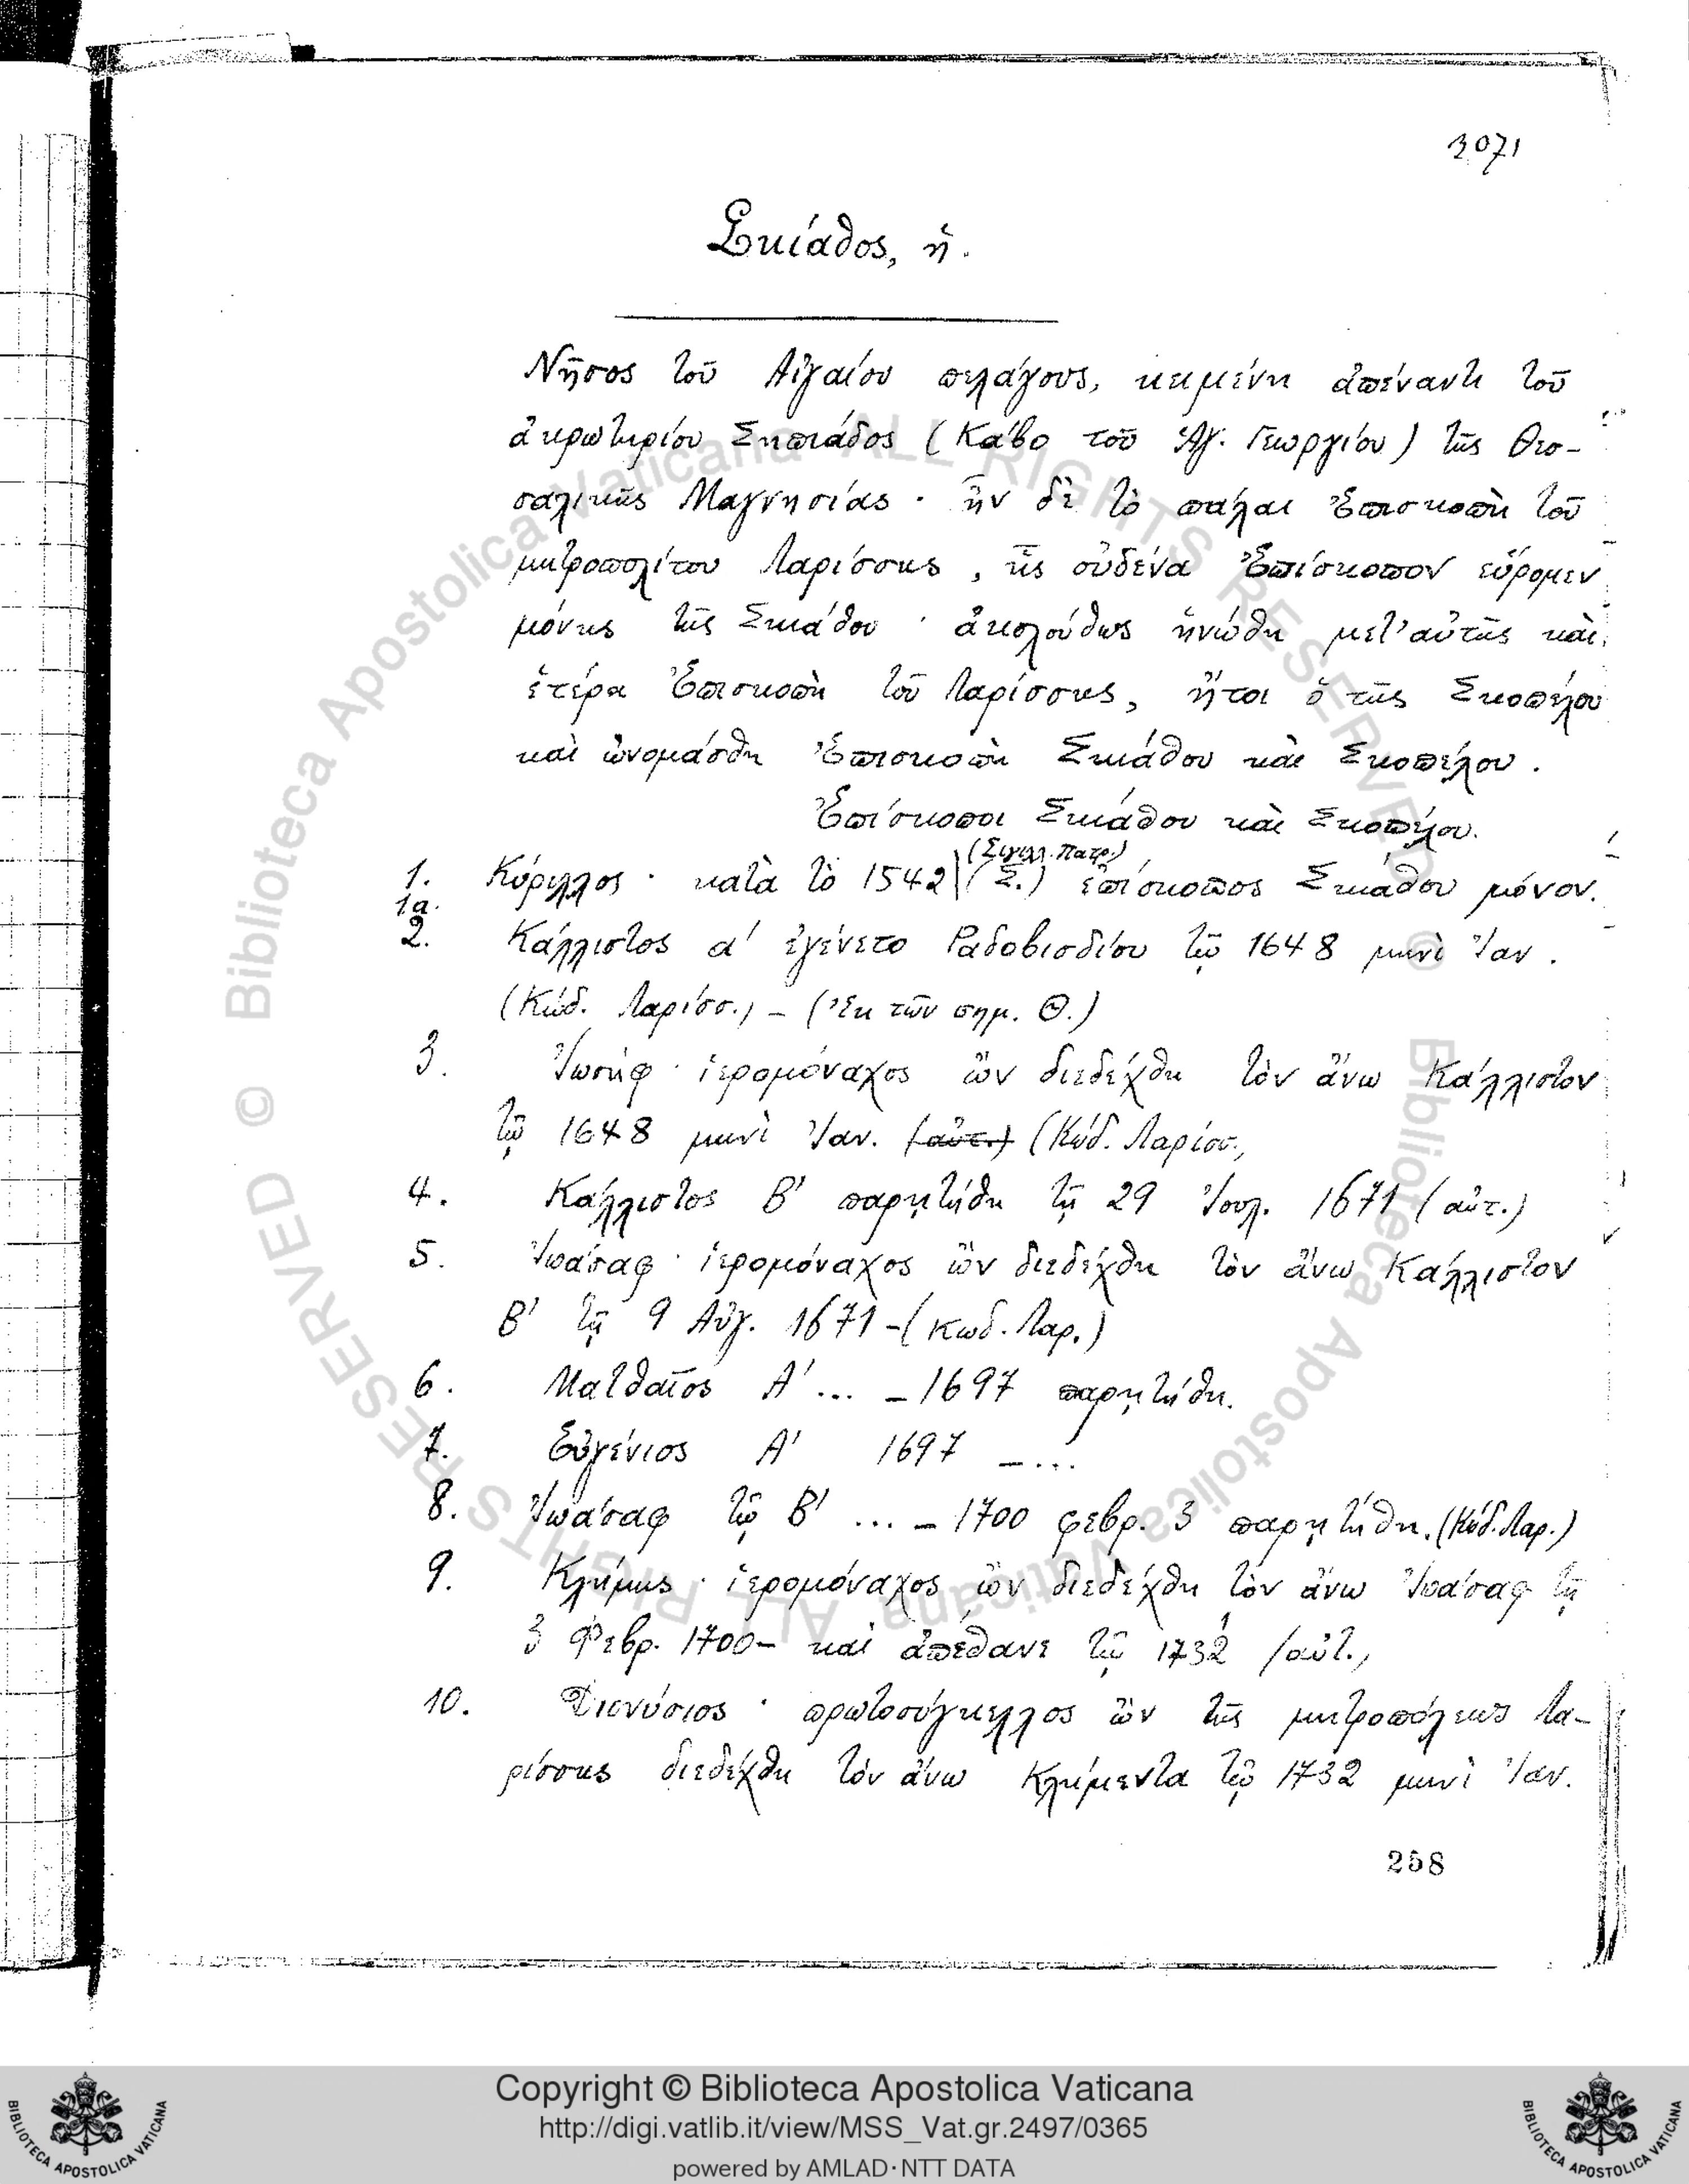 3071
Σκίαθος, ἡ.
Νῆσος τοῦ Αἰγαίου πελάγους, κειμένη ἀπέναντι τοῦ
ἀκρωτηρίου Σηπιάδος (Κάβο τοῦ Ἁγ. Γεωργίου) τῆς Θεσ-
σαλικῆς Μαγνησίας · ἦν δὲ τὸ πάλαι Ἐπισκοπὴ τοῦ
μητροπολίτου Λαρίσσης, ἧς οὐδένα Ἐπίσκοπον εὕρομεν
μόνης τῆς Σκιάθου · ἀκολούθως ἡνώθη μετ' αὐτῆς καὶ
ἑτέρα Ἐπισκοπὴ τοῦ Λαρίσσης, ἤτοι ὁ τῆς Σκοπέλου
καὶ ὠνομάσθη Ἐπισκοπὴ Σκιάθου καὶ Σκοπέλου.
Ἐπίσκοποι Σκιάθου καὶ Σκοπέλου.
(Σιγιλλ. Πατρ.)
1. Κύριλλος · κατὰ τὸ 1542 (Σ.) ἐπίσκοπος Σκιάθου μόνον.
1α.
2. Κάλλιστος α' ἐγένετο Ραδοβισδίου τῷ 1648 μηνὶ Ἰαν.
(Κώδ. Λαρίσσ.) – (Ἐκ τῶν σημ. Θ.)
3. Ἰωσὴφ · ἱερομόναχος ὢν διεδέχθη τὸν ἄνω Κάλλιστον
τῷ 1648 μηνὶ Ἰαν. (αὐτ.) (Κώδ. Λαρίσσ.)
4. Κάλλιστος Β' παρῃτήθη τῇ 29 Ἰουλ. 1671 (αὐτ.)
5. Ἰωάσαφ · ἱερομόναχος ὢν διεδέχθη τὸν ἄνω Κάλλιστον
Β' τῇ 9 Αὐγ. 1671 – (Κωδ. Λαρ.)
6. Ματθαῖος Α' ... – 1697 παρῃτήθη.
7. Εὐγένιος Α' 1697 – ...
8. Ἰωάσαφ τῷ Β' ... – 1700 φεβρ. 3 παρῃτήθη. (Κώδ. Λαρ.)
9. Κλήμης · ἱερομόναχος ὢν διεδέχθη τὸν ἄνω Ἰωάσαφ τῇ
3 Φεβρ. 1700 – καὶ ἀπέθανε τῷ 1732 (αὐτ.)
10. Διονύσιος · πρωτοσύγκελλος ὢν τῆς μητροπόλεως Λα-
ρίσσης διεδέχθη τὸν ἄνω Κλήμεντα τῷ 1732 μηνὶ Ἰαν.
258
© Biblioteca Apostolica Vaticana ALL RIGHTS RESERVED
© Biblioteca Apostolica Vaticana ALL RIGHTS RESERVED
BIBLIOTECA APOSTOLICA VATICANA
Copyright © Biblioteca Apostolica Vaticana
http://digi.vatlib.it/view/MSS_Vat.gr.2497/0365
powered by AMLAD·NTT DATA
BIBLIOTECA APOSTOLICA VATICANA